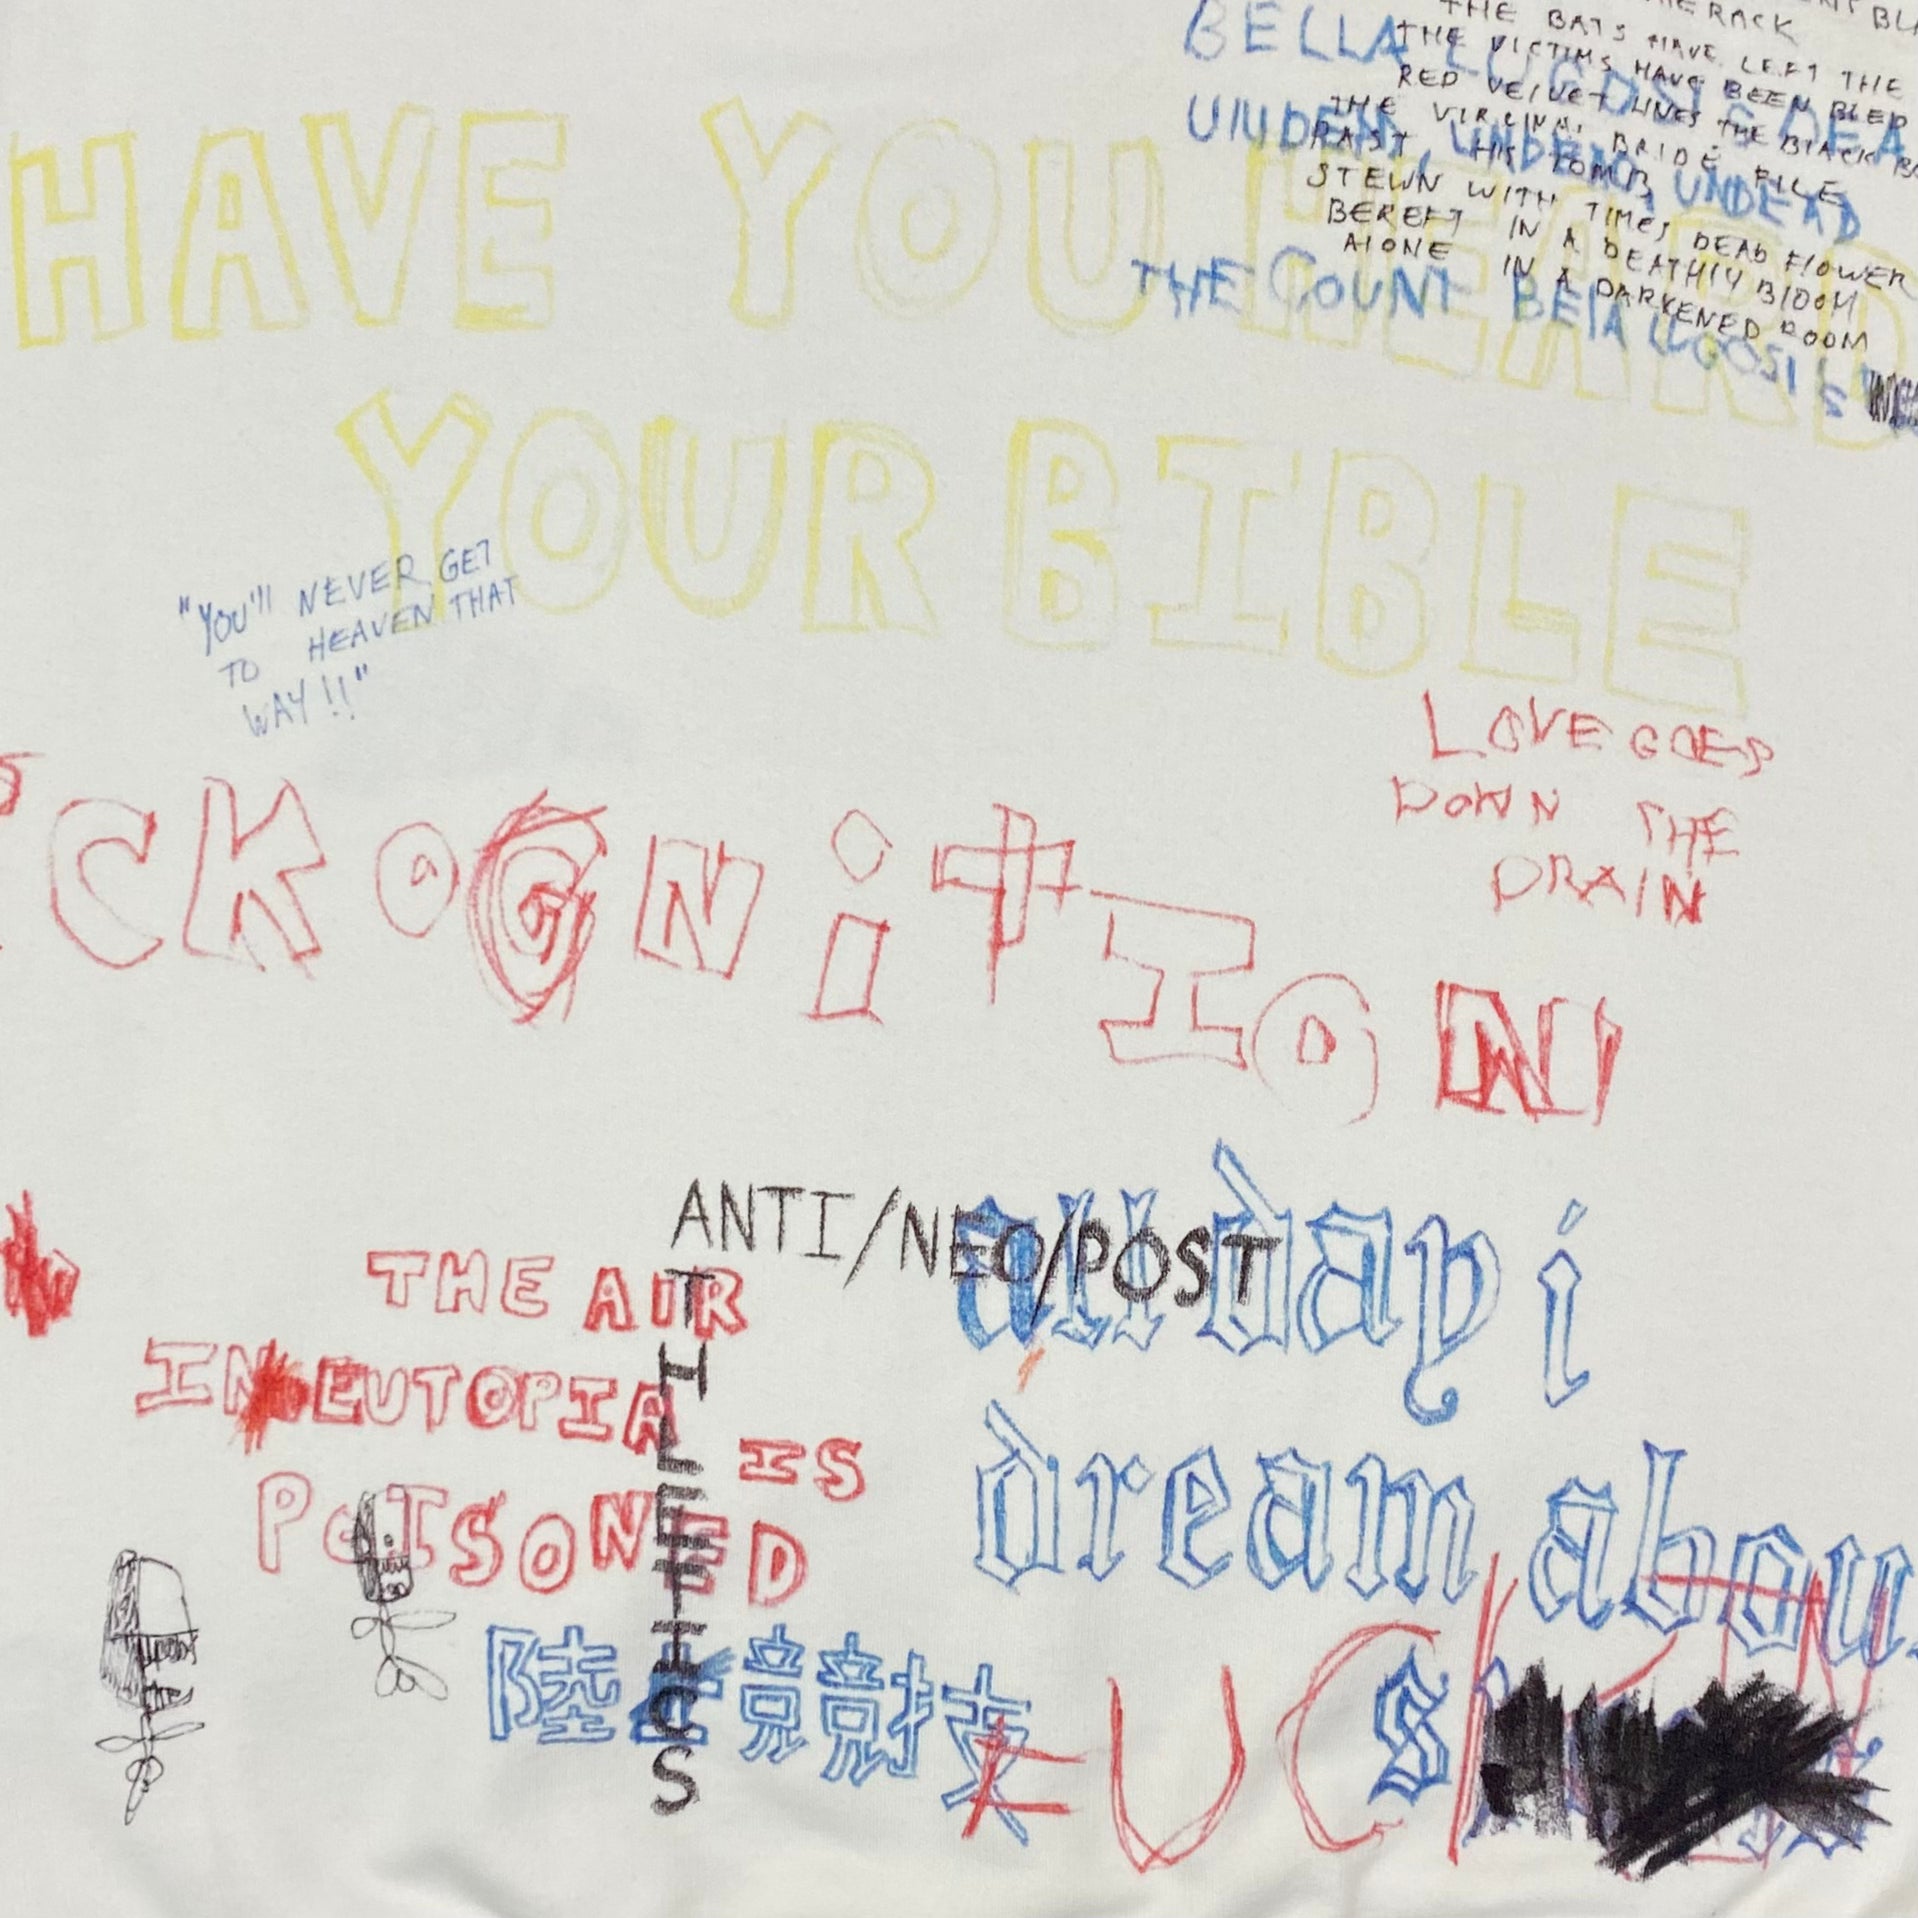 THE BATS HAVE LEFT THE
THE VICTIMS HAVE BEEN BLED
RED VELVET LINES THE BLACK
THE VIRGINAL BRIDE FILE
PAST HIS TOMB
STEWN WITH TIMES DEAD FLOWER
BEREFT IN A DEATHLY BLOOM
ALONE IN A DARKENED ROOM
BELLA LUGOSI IS DEA
UNDEAD, UNDEAD, UNDEAD
THE COUNT BELA LUGOSI IS
HAVE YOU HEARD
YOUR BIBLE
"YOU'll NEVER GET
TO HEAVEN THAT
WAY!!"
LOVE GOES
DOWN THE
DRAIN
CKOGNiTION
ANTI/NEO/POST
ATHLETICS
THE AIR
IN EUTOPIA
IS
POISONED
all day i
dream abou
陸上競技
FUCK